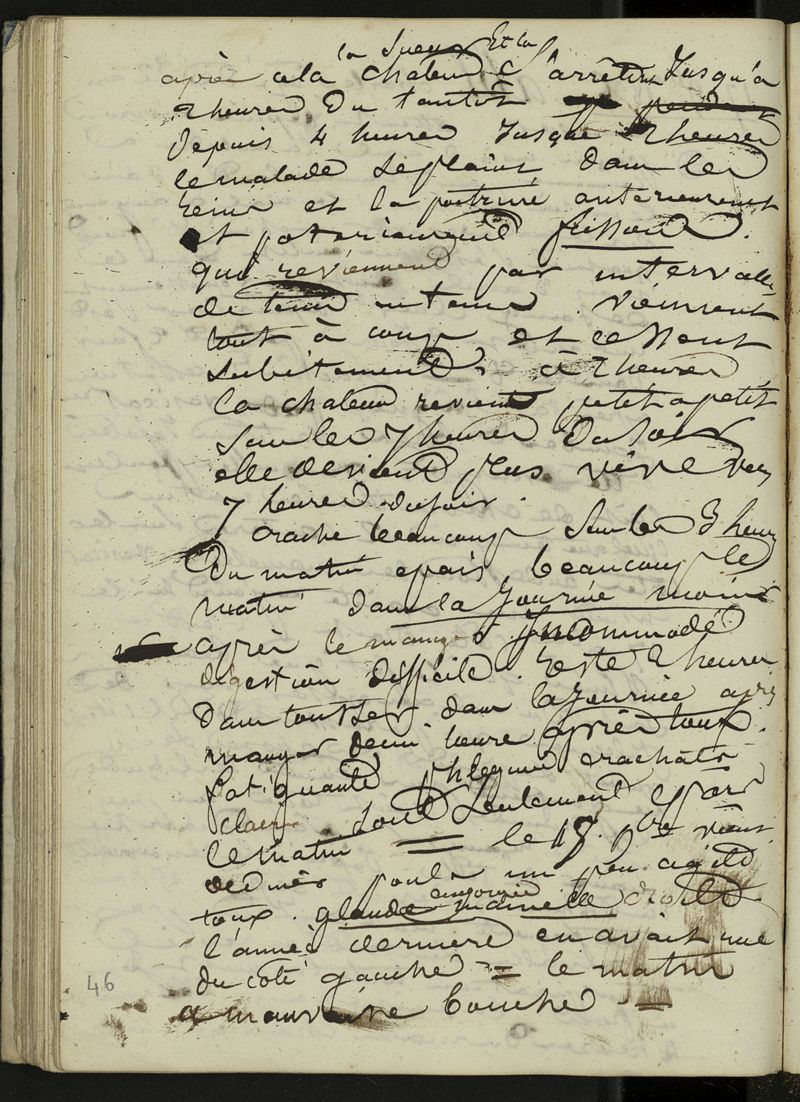 la sueur Et la
après cela chaleur s'arrêtent Jusqu'a
2 heures Du tantôt
Depuis 4 heures Jusque 2 heures
le malade se plaint dans les
reins et la poitrine anterieurement
et posterieurement frissons
qui reviennent par intervalle
de tems en tems viennent
tout à coup et cessent
subitement à 2 heures
la chaleur revient petit a petit
sur les 7 heures Du soir
elle devient plus vive vers
7 heures du soir.
crache beaucoup sur les 3 heures
Du matin epais beaucoup le
matin dans la Journée moins
après le manger Incommodé
digestion difficile. reste 2 heures
sans tousser dans la Journée après
manger demi heure après toux
fatiguante phlegme crachats
clairs sont seulement epais
le matin = le 18. vient
de diner pouls un peu agité
toux. glande engorgée mamelle droite
l'année derniere en avait une
du côté gauche = le matin
a mauvaise bouche =
46